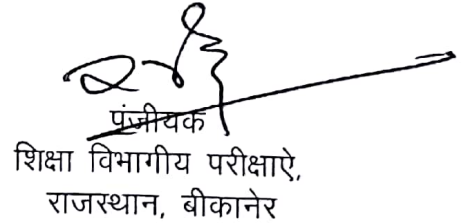 पंजीयक
शिक्षा विभागीय परीक्षाऐ,
राजस्थान, बीकानेर